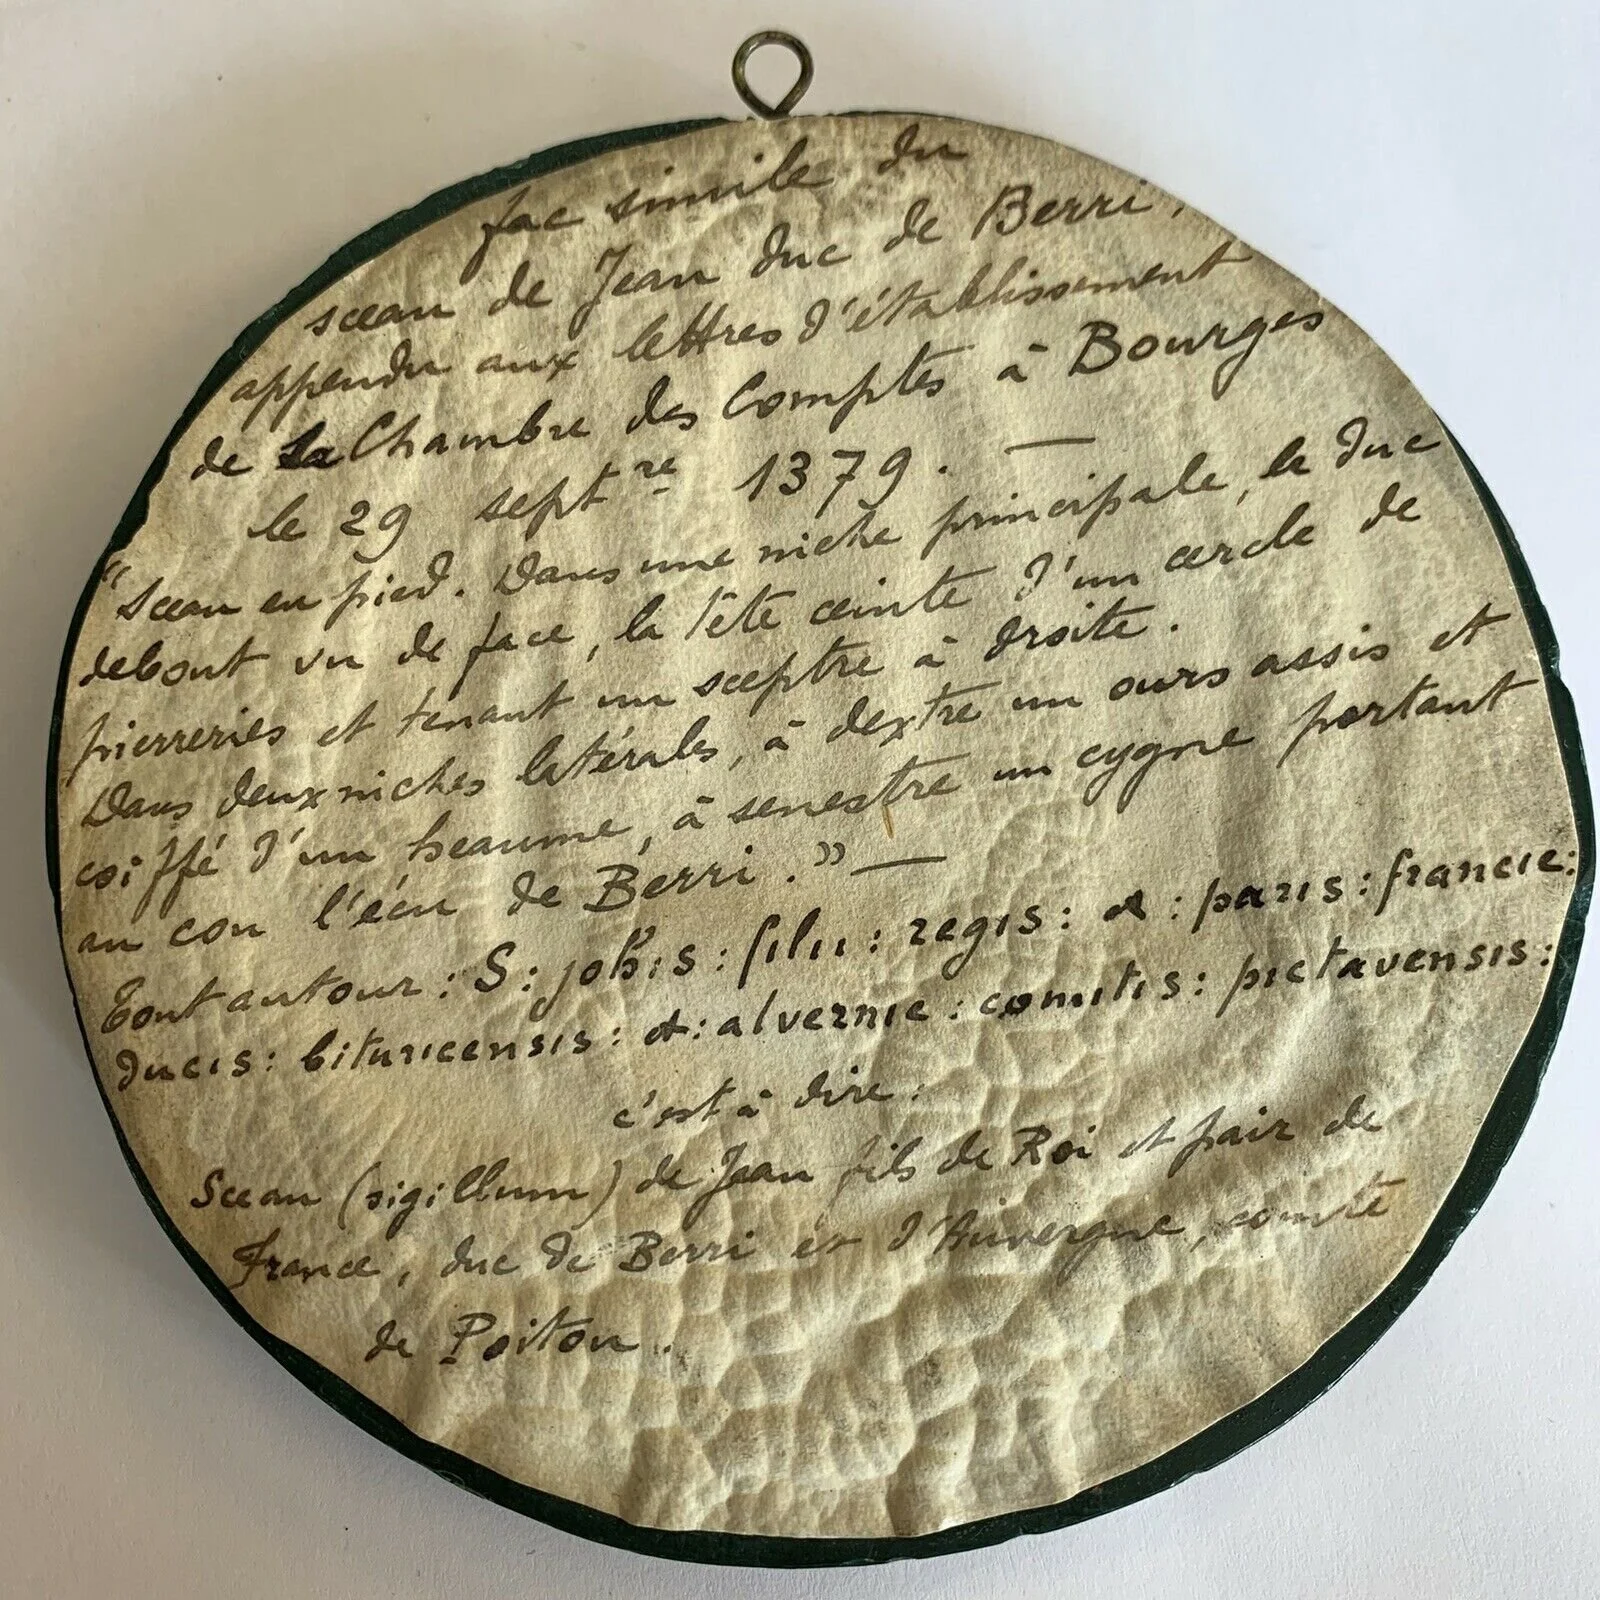 fac simile du
sceau de Jean duc de Berri,
appendu aux lettres d'établissement
de la Chambre des Comptes à Bourges
le 29 sept^re 1379. —
"Sceau en pied. Dans une niche principale, le duc
debout vu de face, la tête ceinte d'un cercle de
pierreries et tenant un sceptre à droite.
Dans deux niches latérales, à dextre un ours assis et
coiffé d'un heaume, à senestre un cygne portant
au cou l'écu de Berri." —
Tout autour : S : joh'is : filii : regis : et : paris : francie :
ducis : bituricensis : et : alvernie : comitis : pictavensis :
c'est à dire :
Sceau (sigillum) de Jean fils de Roi et pair de
France, duc de Berri et d'Auvergne, comte
de Poitou.